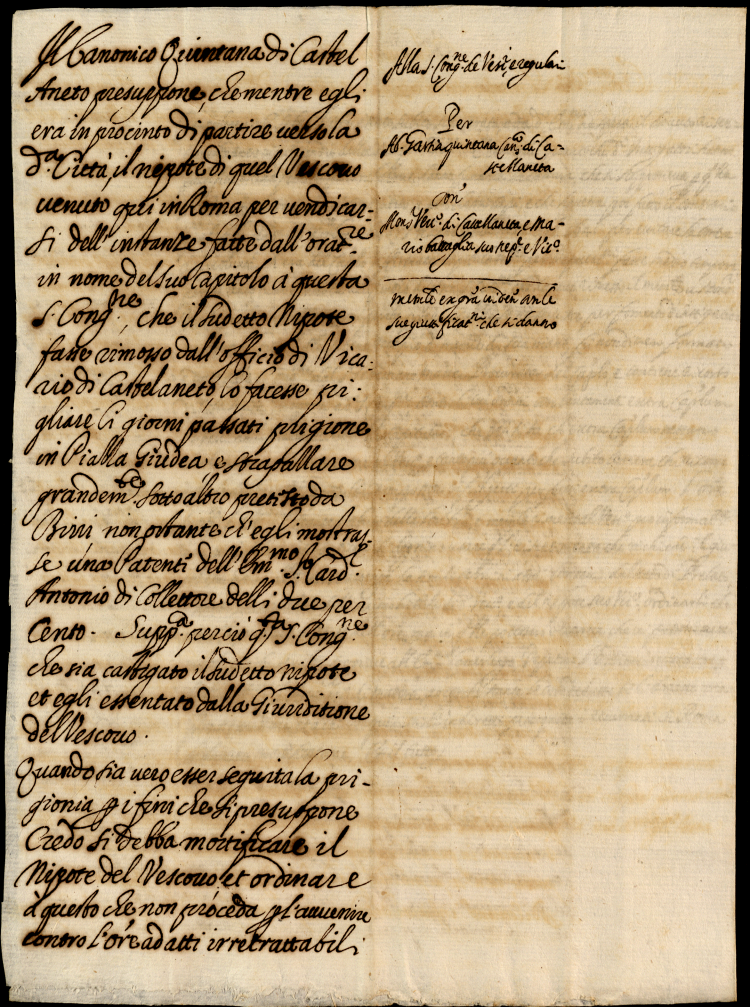 Il Canonico Quintana di Castel
Aneto presuppone, che mentre egli
era in procinto di partire verso la
d.ª Città, il nipote di quel Vescovo
venuto qui in Roma per vendicar-
si dell'instanze fatte dall'orat.re
in nome del suo Capitolo à questa
S. Cong.ne, che il sudetto Nipote
fasse rimosso dall'officio di Vica-
rio di Castelaneto lo facesse pi-
gliare li giorni passati prigione
in Piazza Giudea e strapazzare
grandem.te sotto altro pretesto da
Birri non ostante ch'egli mostras-
se una Patente dell'Em.mo S. Card.l
Antonio di Collettore delli due per
Cento. Supp.ca perciò q.sta S. Cong.ne
che sia castigato il sudetto nipote
et egli essentato dalla Giuriditione
del Vescovo.
Quando sia vero esser seguita la pri-
gionia p i fini che si presuppone
Credo si debba mortificare il
Nipote del Vescovo et ordinare
à questo che non proceda p l'avvenire
contro l'ore ad atti irretrattabili
Alla S. Cong.ne de Vesc. e regulari
Per
Ab. quintana Can.co di Ca-
stellaneta
con
Mons. Vesc.o di Castellaneta e Ma-
rio Battaglia suo nep.e e Vic.o
sue giustificat.ni che si danno